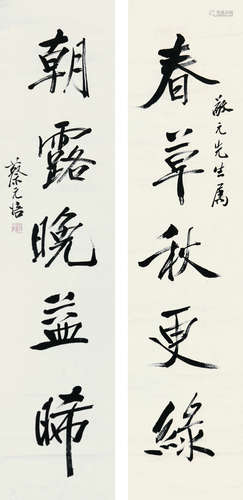 春草秋更綠
元先生属
朝露晚益晞
蔡元培